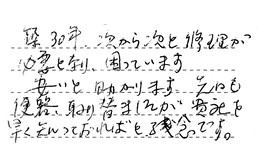 築30年、次から次と修理が
必要となり、困っています
安いと助かります 先日も
便器取り替ましたが貴社を
早く知っておればと残念です。